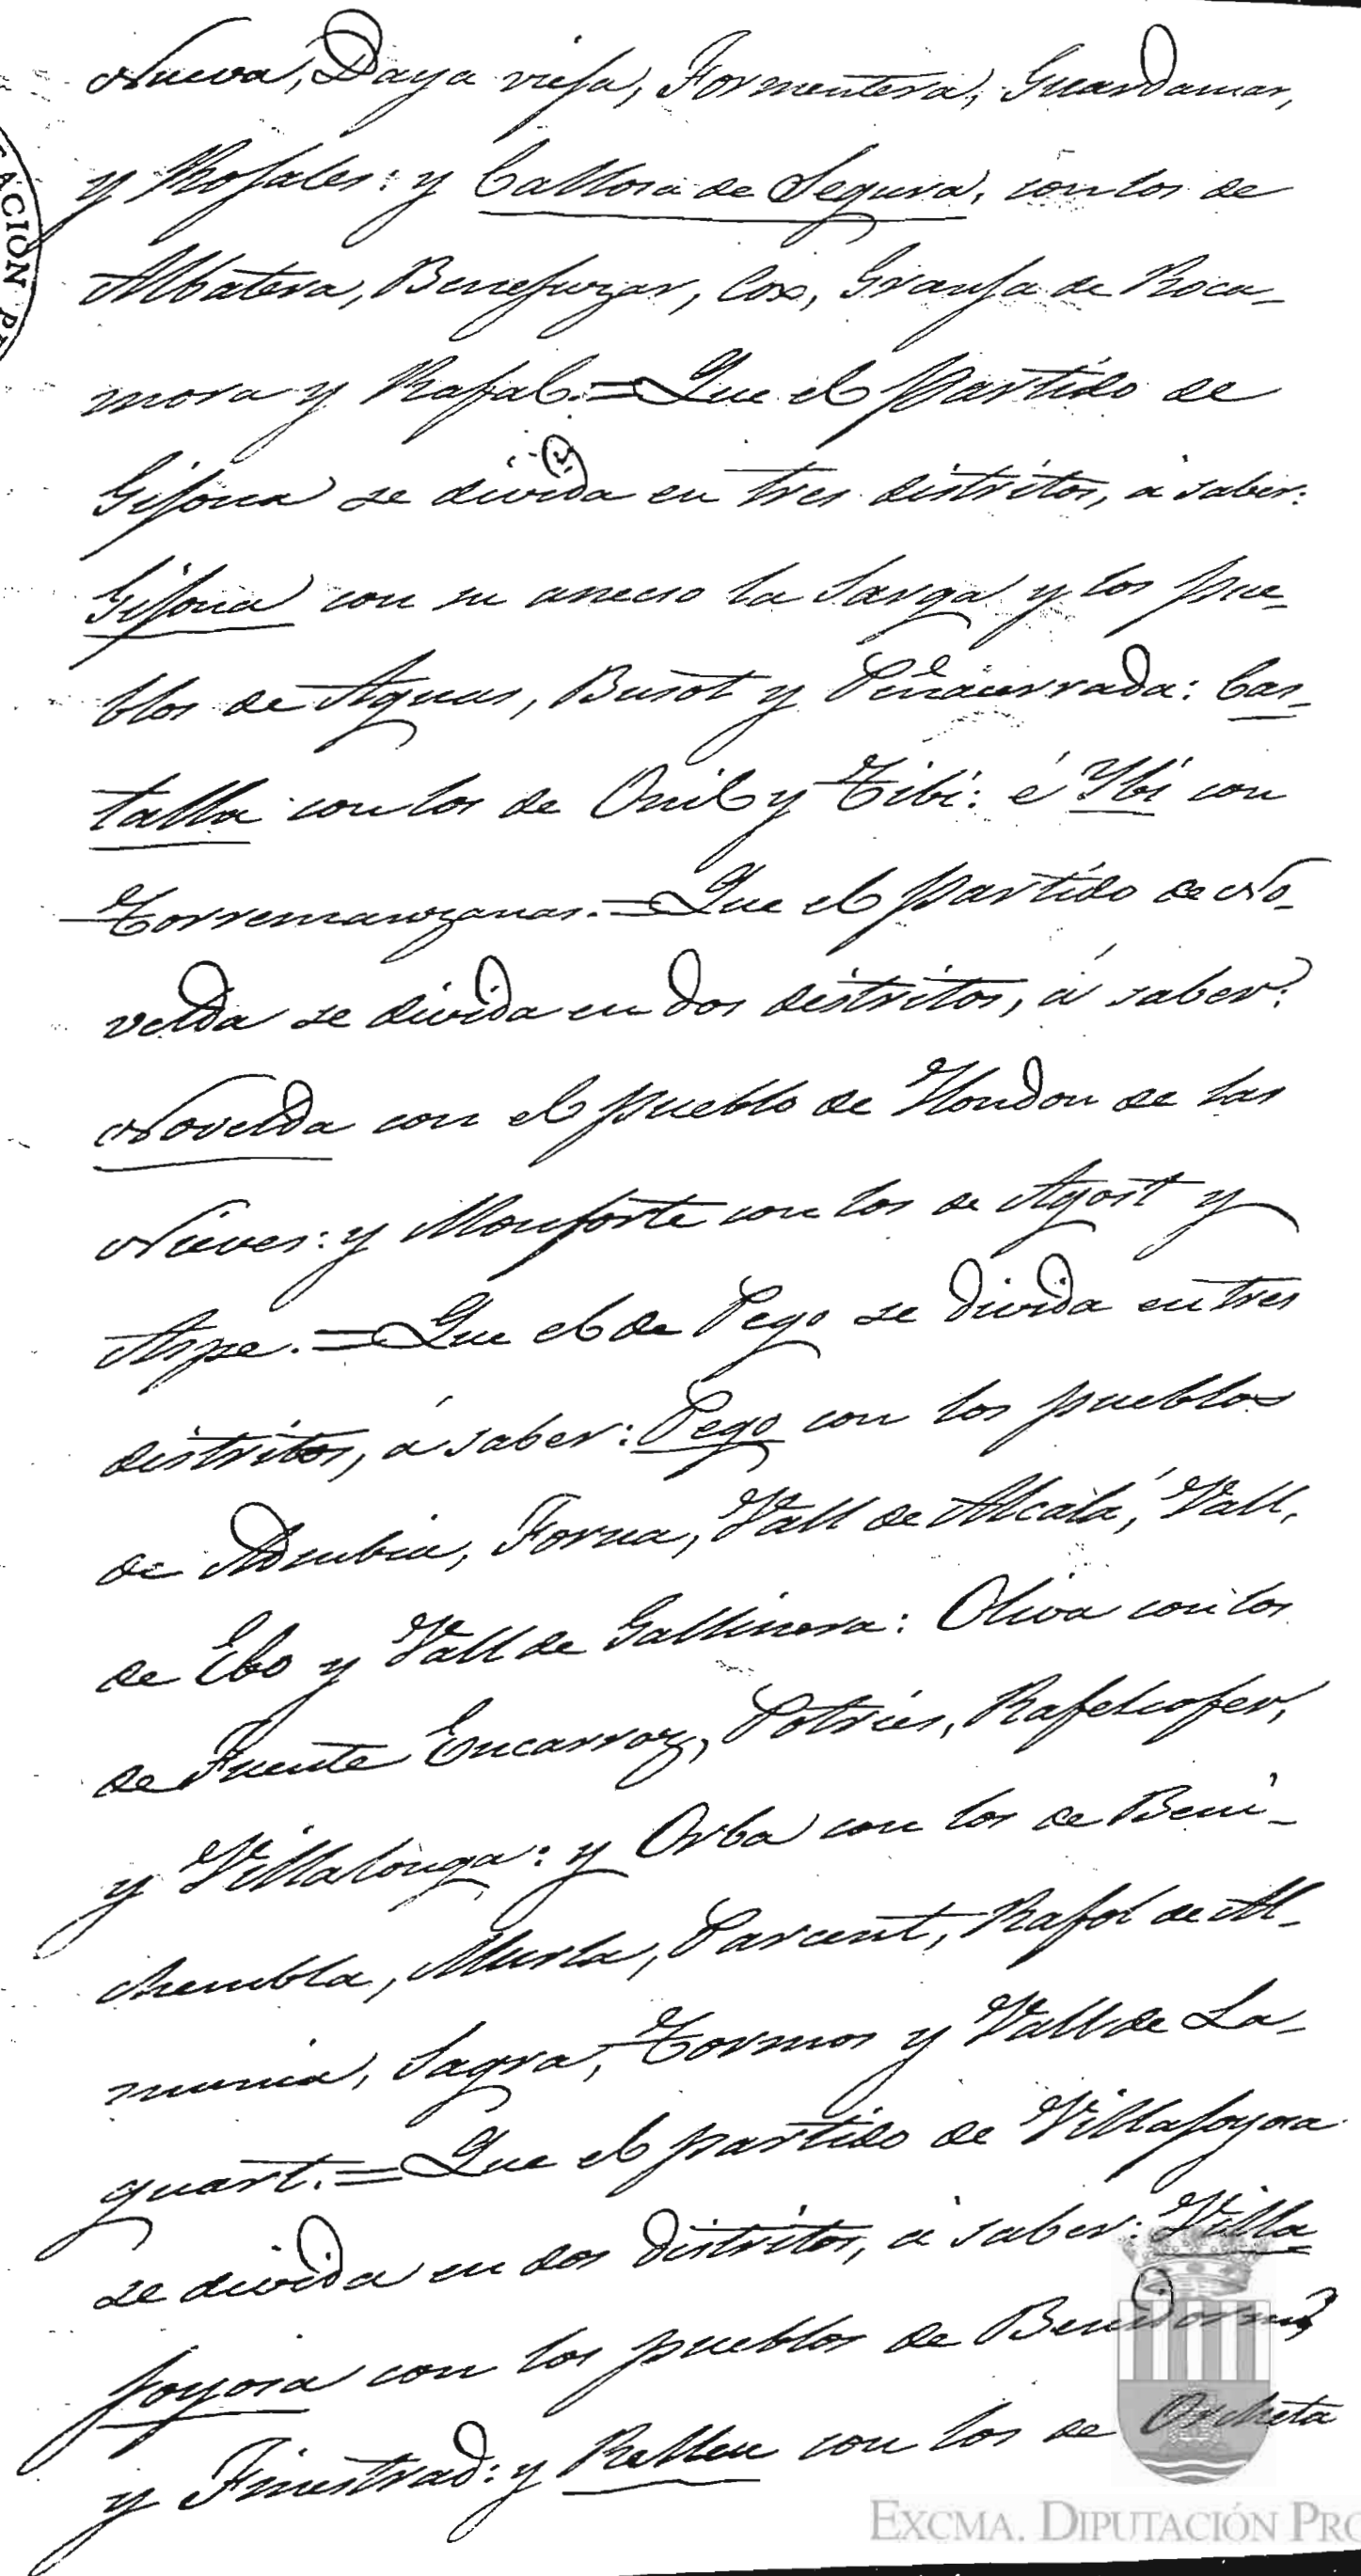 Nueva, Daya vieja, Formentera, Guardamar,
y Rojales: y Callosa de Segura, con los de
Albatera, Benejuzar, Cox, Granja de Roca-
mora y Rafal.=Que el partido de
Gijona se divida en tres distritos, á saber:
Gijona con su anecso la Sarga y los pue-
blos de Aguas, Busot y Peñacerrada: Cas-
talla con los de Onil y Tibi: é Ybi con
Torremanzanas.=Que el partido de No-
velda se divida en dos distritos, á saber:
Novelda con el pueblo de Hondon de las
Nieves: y Monforte con los de Agost y
Aspe.=Que el de Pego se divida en tres
distritos, á saber: Pego con los pueblos
de Adsubia, Forna, Vall de Alcalá, Vall,
de Ebo y Vall de Gallinera: Oliva con los
de Fuente Encarroz, Potries, Rafelcofer,
y Villalonga: y Orba con los de Beni-
chembla, Murla, Parcent, Rafol de Al-
munia, Sagra, Tormos y Vall de La-
guart.=Que el partido de Villajoyosa
se divida en dos distritos, á saber: Villa
joyosa con los pueblos de Benidorm,
y Finestrad: y Relleu con los de Orcheta
ACION P
EXCMA. DIPUTACIÓN PRO